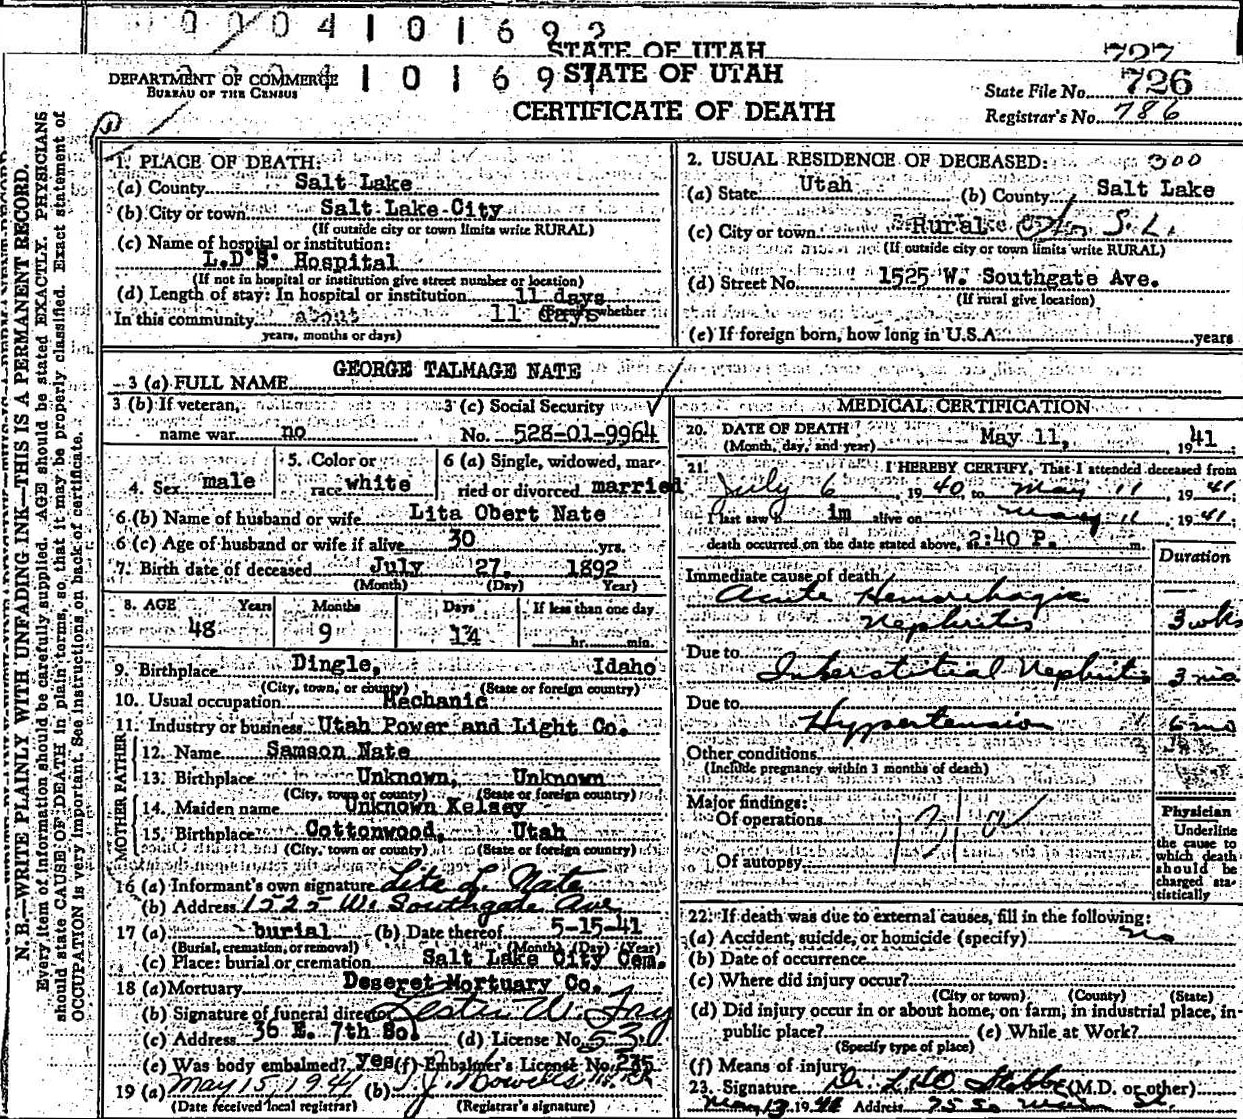 0004101692
STATE OF UTAH
727
DEPARTMENT OF COMMERCE
BUREAU OF THE CENSUS
STATE OF UTAH
CERTIFICATE OF DEATH
State File No. 726
Registrar's No. 786
N. B.—WRITE PLAINLY WITH UNFADING INK—THIS IS A PERMANENT RECORD.
Every item of information should be carefully supplied. AGE should be stated EXACTLY. PHYSICIANS
should state CAUSE OF DEATH in plain terms, so that it may be properly classified. Exact statement of
OCCUPATION is very important. See instructions on back of certificate.
1. PLACE OF DEATH:
(a) County Salt Lake
(b) City or town Salt Lake City
(If outside city or town limits write RURAL)
(c) Name of hospital or institution:
L.D'S. Hospital
(If not in hospital or institution give street number or location)
(d) Length of stay: In hospital or institution 11 days
In this community about 11 days whether
years, months or days)
2. USUAL RESIDENCE OF DECEASED: 300
(a) State Utah (b) County Salt Lake
(c) City or town Rural S. L.
(If outside city or town limits write RURAL)
(d) Street No. 1525 W. Southgate Ave.
(If rural give location)
(e) If foreign born, how long in U.S.A. years
3 (a) FULL NAME GEORGE TALMAGE NATE
3 (b) If veteran, 3 (c) Social Security
name war no No. 528-01-9964
4. Sex male 5. Color or race white 6 (a) Single, widowed, married or divorced married
6 (b) Name of husband or wife Lita Obert Nate
6 (c) Age of husband or wife if alive 30 yrs.
7. Birth date of deceased July 27, 1892
(Month) (Day) Year)
8. AGE Years Months Days If less than one day
48 9 14 hr. min.
9. Birthplace Dingle, Idaho
(City, town, or county) (State or foreign country)
10. Usual occupation Mechanic
11. Industry or business Utah Power and Light Co.
FATHER
12. Name Samson Nate
13. Birthplace Unknown, Unknown
(City, town or county) (State or foreign country)
MOTHER
14. Maiden name Unknown Kelsey
15. Birthplace Cottonwood, Utah
(City, town or county) (State or foreign country)
16 (a) Informant's own signature Lita L. Nate
(b) Address 1525 W. Southgate Ave
17 (a) burial (b) Date thereof 5-15-41
(Burial, cremation, or removal) (Month) (Day) (Year)
(c) Place: burial or cremation Salt Lake City Cem.
18 (a) Mortuary Deseret Mortuary Co.
(b) Signature of funeral director Lester W. Fry
(c) Address 36 E. 7th So. (d) License No. 530
(e) Was body embalmed? yes (f) Embalmer's License No. 235
19 (a) May 15, 1941 (b)
(Date received local registrar) (Registrar's signature)
MEDICAL CERTIFICATION
20. DATE OF DEATH
(Month, day, and year) May 11, 1941
21. I HEREBY CERTIFY, That I attended deceased from
July 6, 1940 to May 11, 1941;
I last saw him alive on May 11, 1941;
death occurred on the date stated above, at 2:40 P. m.
Duration
Immediate cause of death
Acute Hemorrhagic
Nephritis 3 wks
Due to
Interstitial Nephritis 3 mo
Due to
Hypertension 6 mo
Other conditions
(Include pregnancy within 3 months of death)
Major findings:
Of operations
Of autopsy
Physician
Underline
the cause to
which death
should be
charged sta-
tistically
22. If death was due to external causes, fill in the following:
(a) Accident, suicide, or homicide (specify) no
(b) Date of occurrence
(c) Where did injury occur?
(City or town) (County) (State)
(d) Did injury occur in or about home, on farm, in industrial place, in
public place? (e) While at Work?
(Specify type of place)
(f) Means of injury
23. Signature Dr. (M.D. or other)
May 13, 1941 Address 75 So Main St.